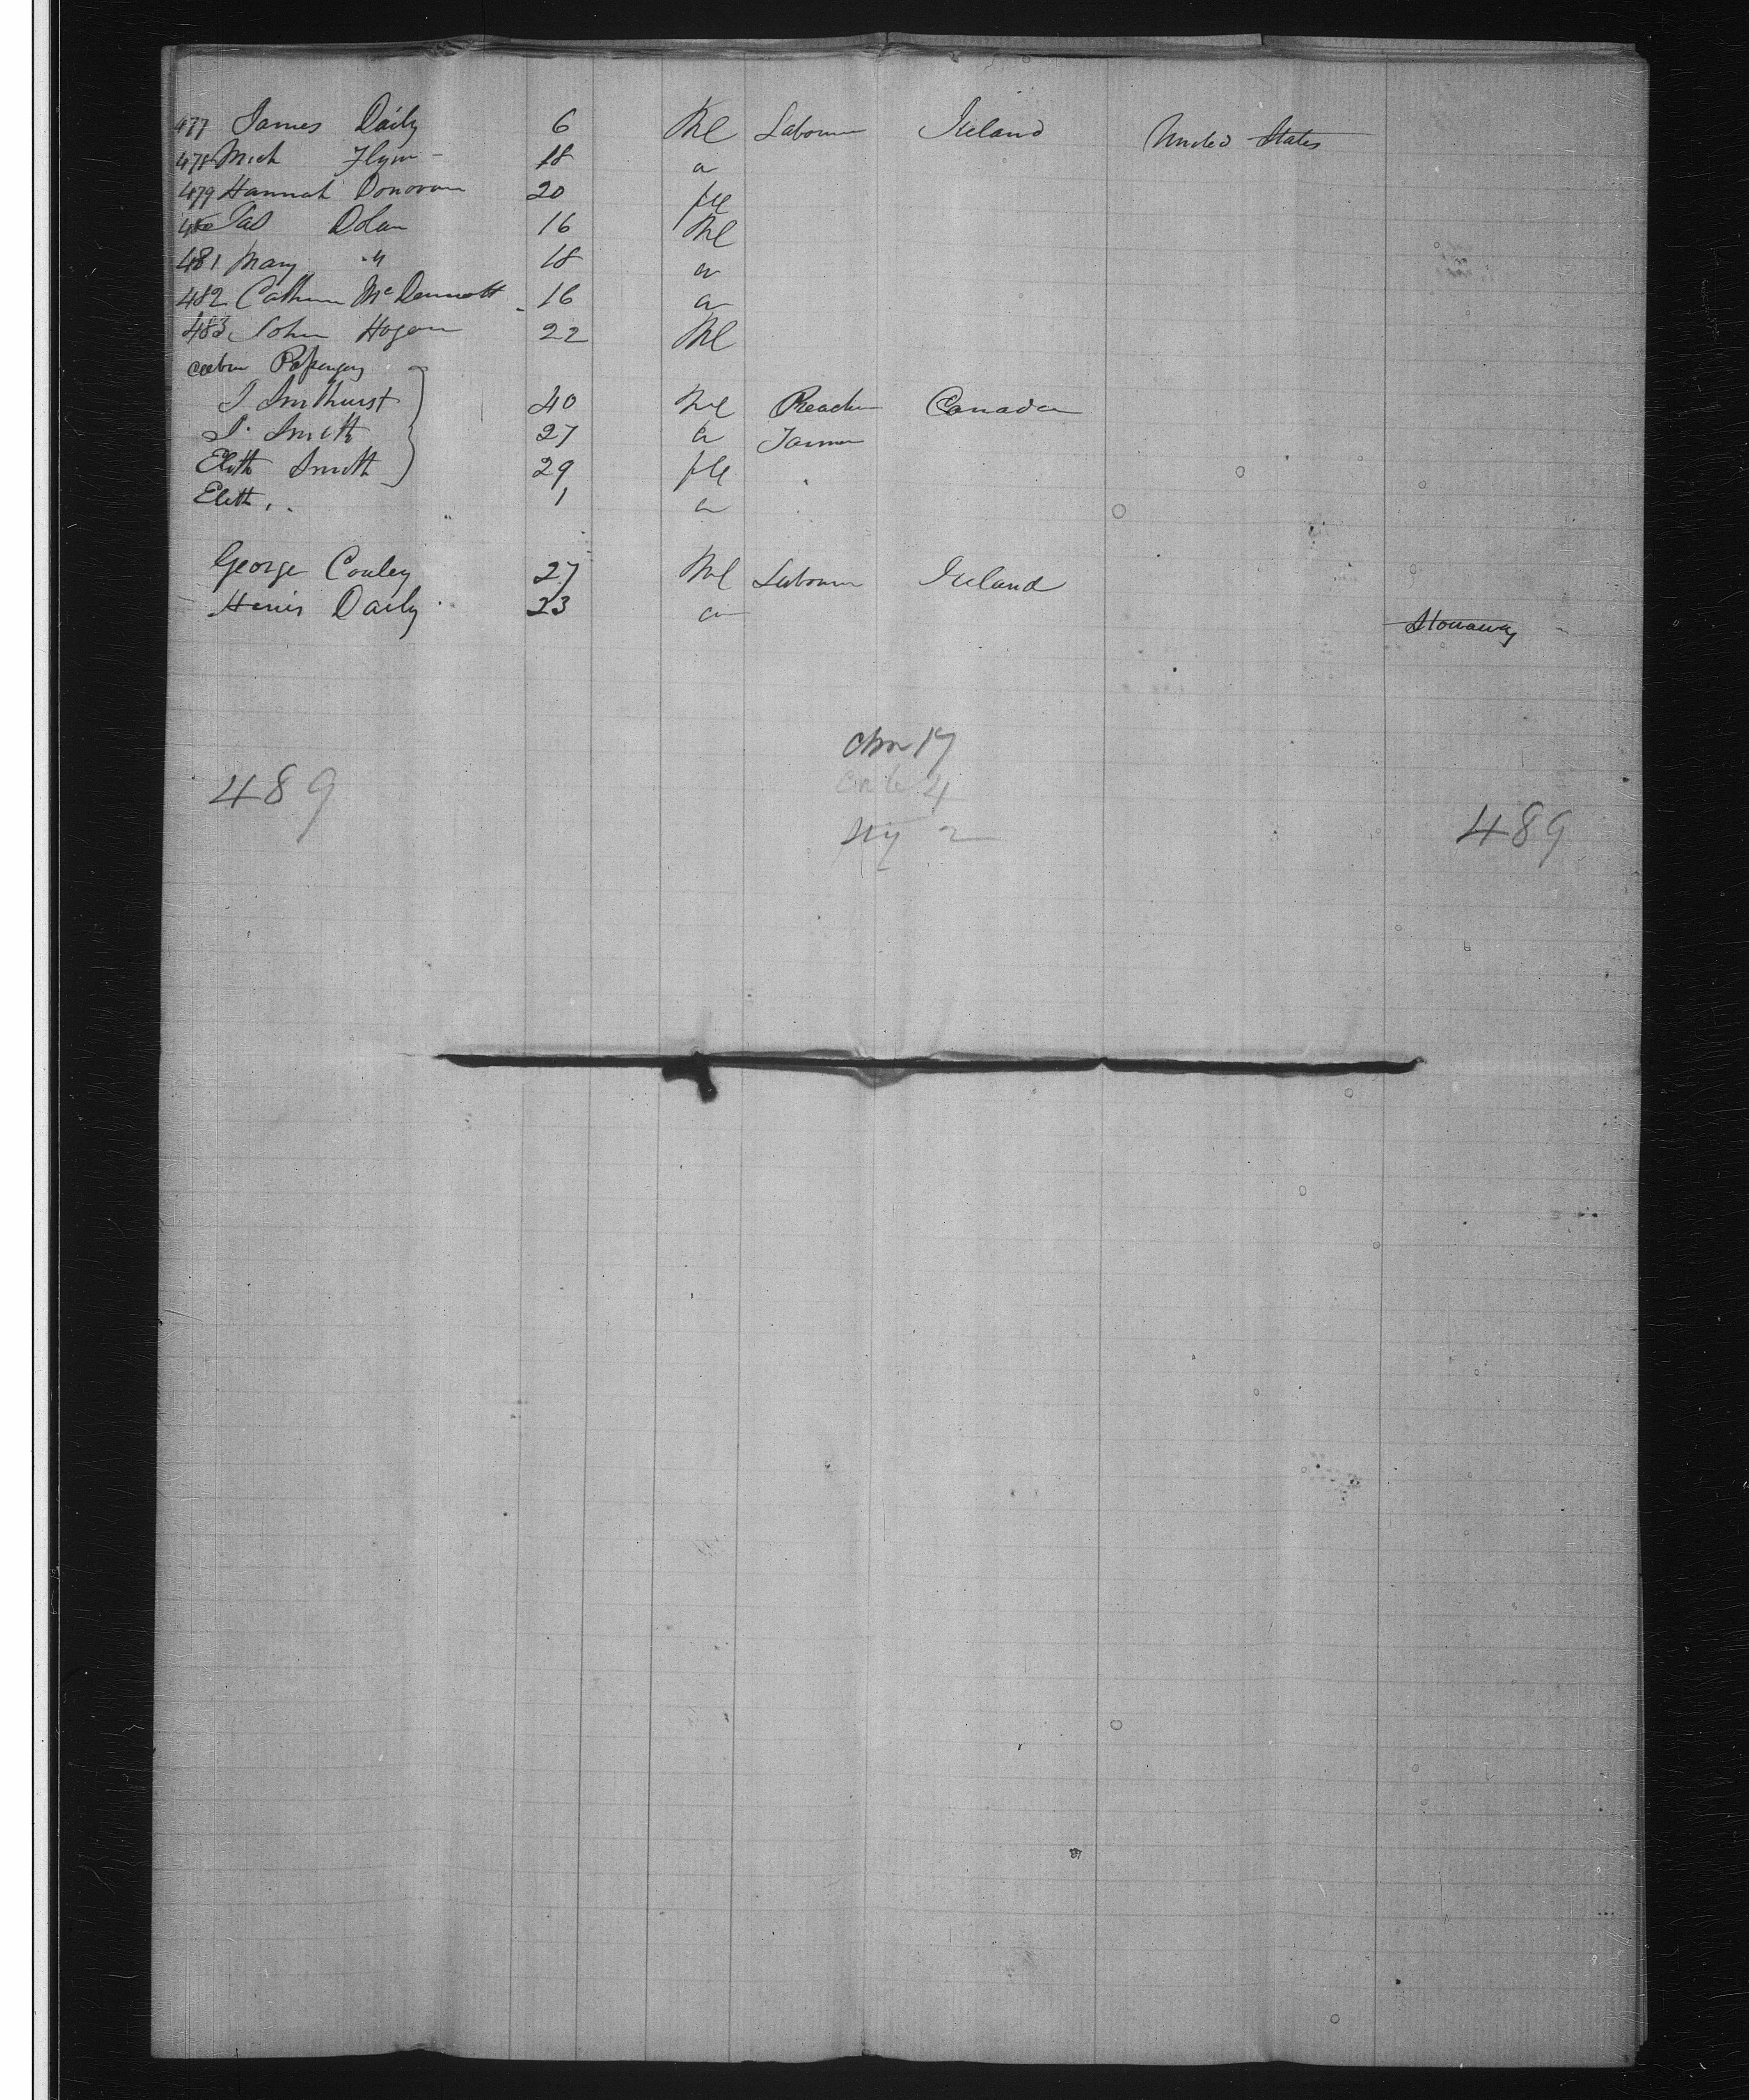 477 James Daily 6 Ml Labourer Ireland United States
478 Mich Flynn 18 "
479 Hannah Donovan 20 fle
480 Jas Dolan 16 Ml
481 Mary " 18 "
482 Cathrine McDermott 16 "
483 John Hogan 22 Ml
Cabin
J Smithurst 40 Ml Preacher Canada
J. Smith 27 " Farmer
Elith Smith 29 fle
Elith " 1 "
George Conley 27 Ml Labourer Ireland
Daily 23 " Stowaway
17
4
489 2 489